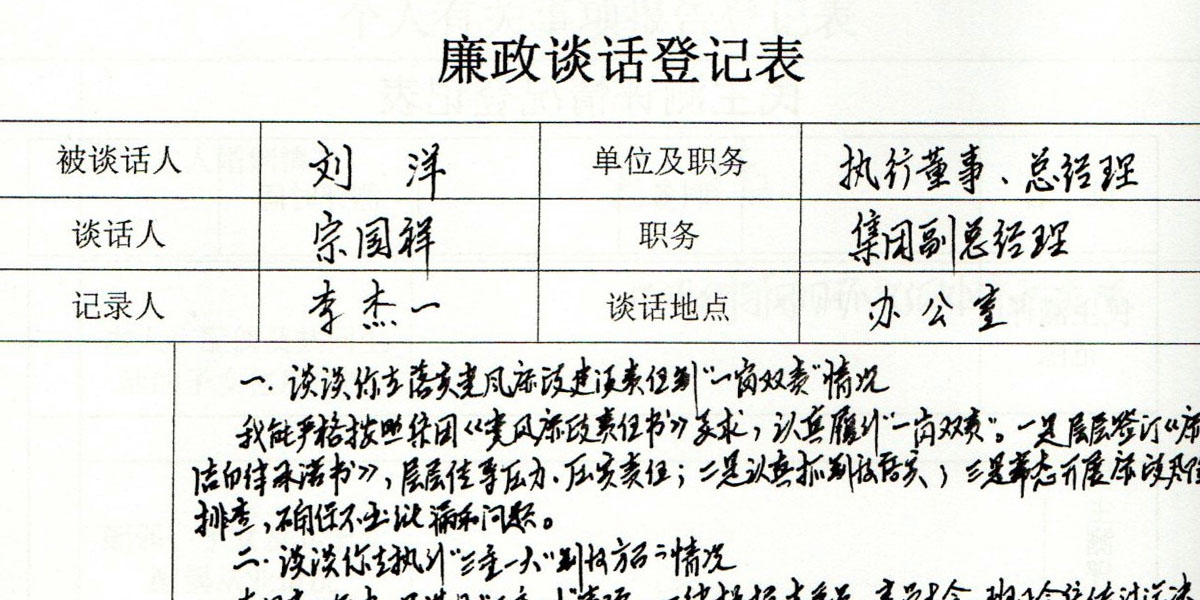 廉政谈话登记表
被谈话人 刘 洋 单位及职务 执行董事、总经理
谈话人 宗国祥 职务 集团副总经理
记录人 李杰一 谈话地点 办公室
一. 谈谈你在落实党风廉政建设责任制"一岗双责"情况
我能严格按照集团《党风廉政责任书》要求,认真履行"一岗双责"。一是层层签订《廉
洁自律承诺书》,层层传导压力、压实责任;二是认真抓制度落实;三是常态开展廉政风险
排查,确保不出现漏和问题。
二. 谈谈你在执行"三重一大"制度方面的情况